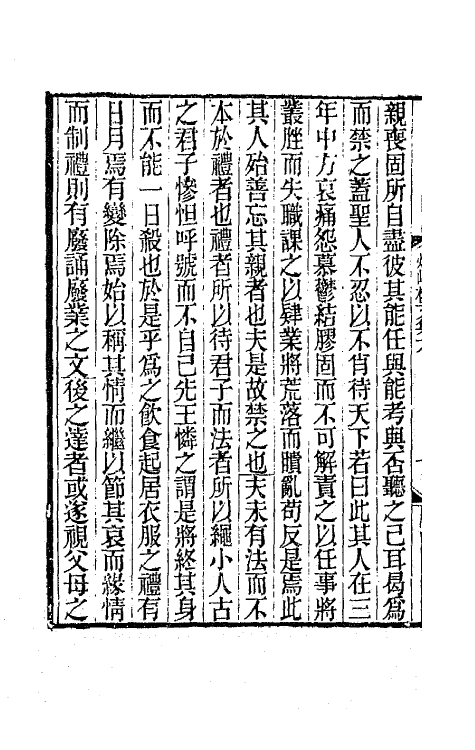 親喪固所自盡彼其能任與能考與否聽之己耳曷爲
而禁之蓋聖人不忍以不肖待天下若曰此其人在三
年中方哀痛怨慕鬱結膠固而不可解責之以任事將
叢脞而失職課之以肄業將荒落而瞶亂苟反是焉此
其人殆善忘其親者也夫是故禁之也夫未有法而不
本於禮者也禮者所以待君子而法者所以繩小人古
之君子慘怛呼號而不自己先王憐之謂是將終其身
而不能一日殺也於是乎爲之飮食起居衣服之禮有
日月焉有變除焉始以稱其情而繼以節其哀而緣情
而制禮則有廢誦廢業之文後之達者或遂視父母之